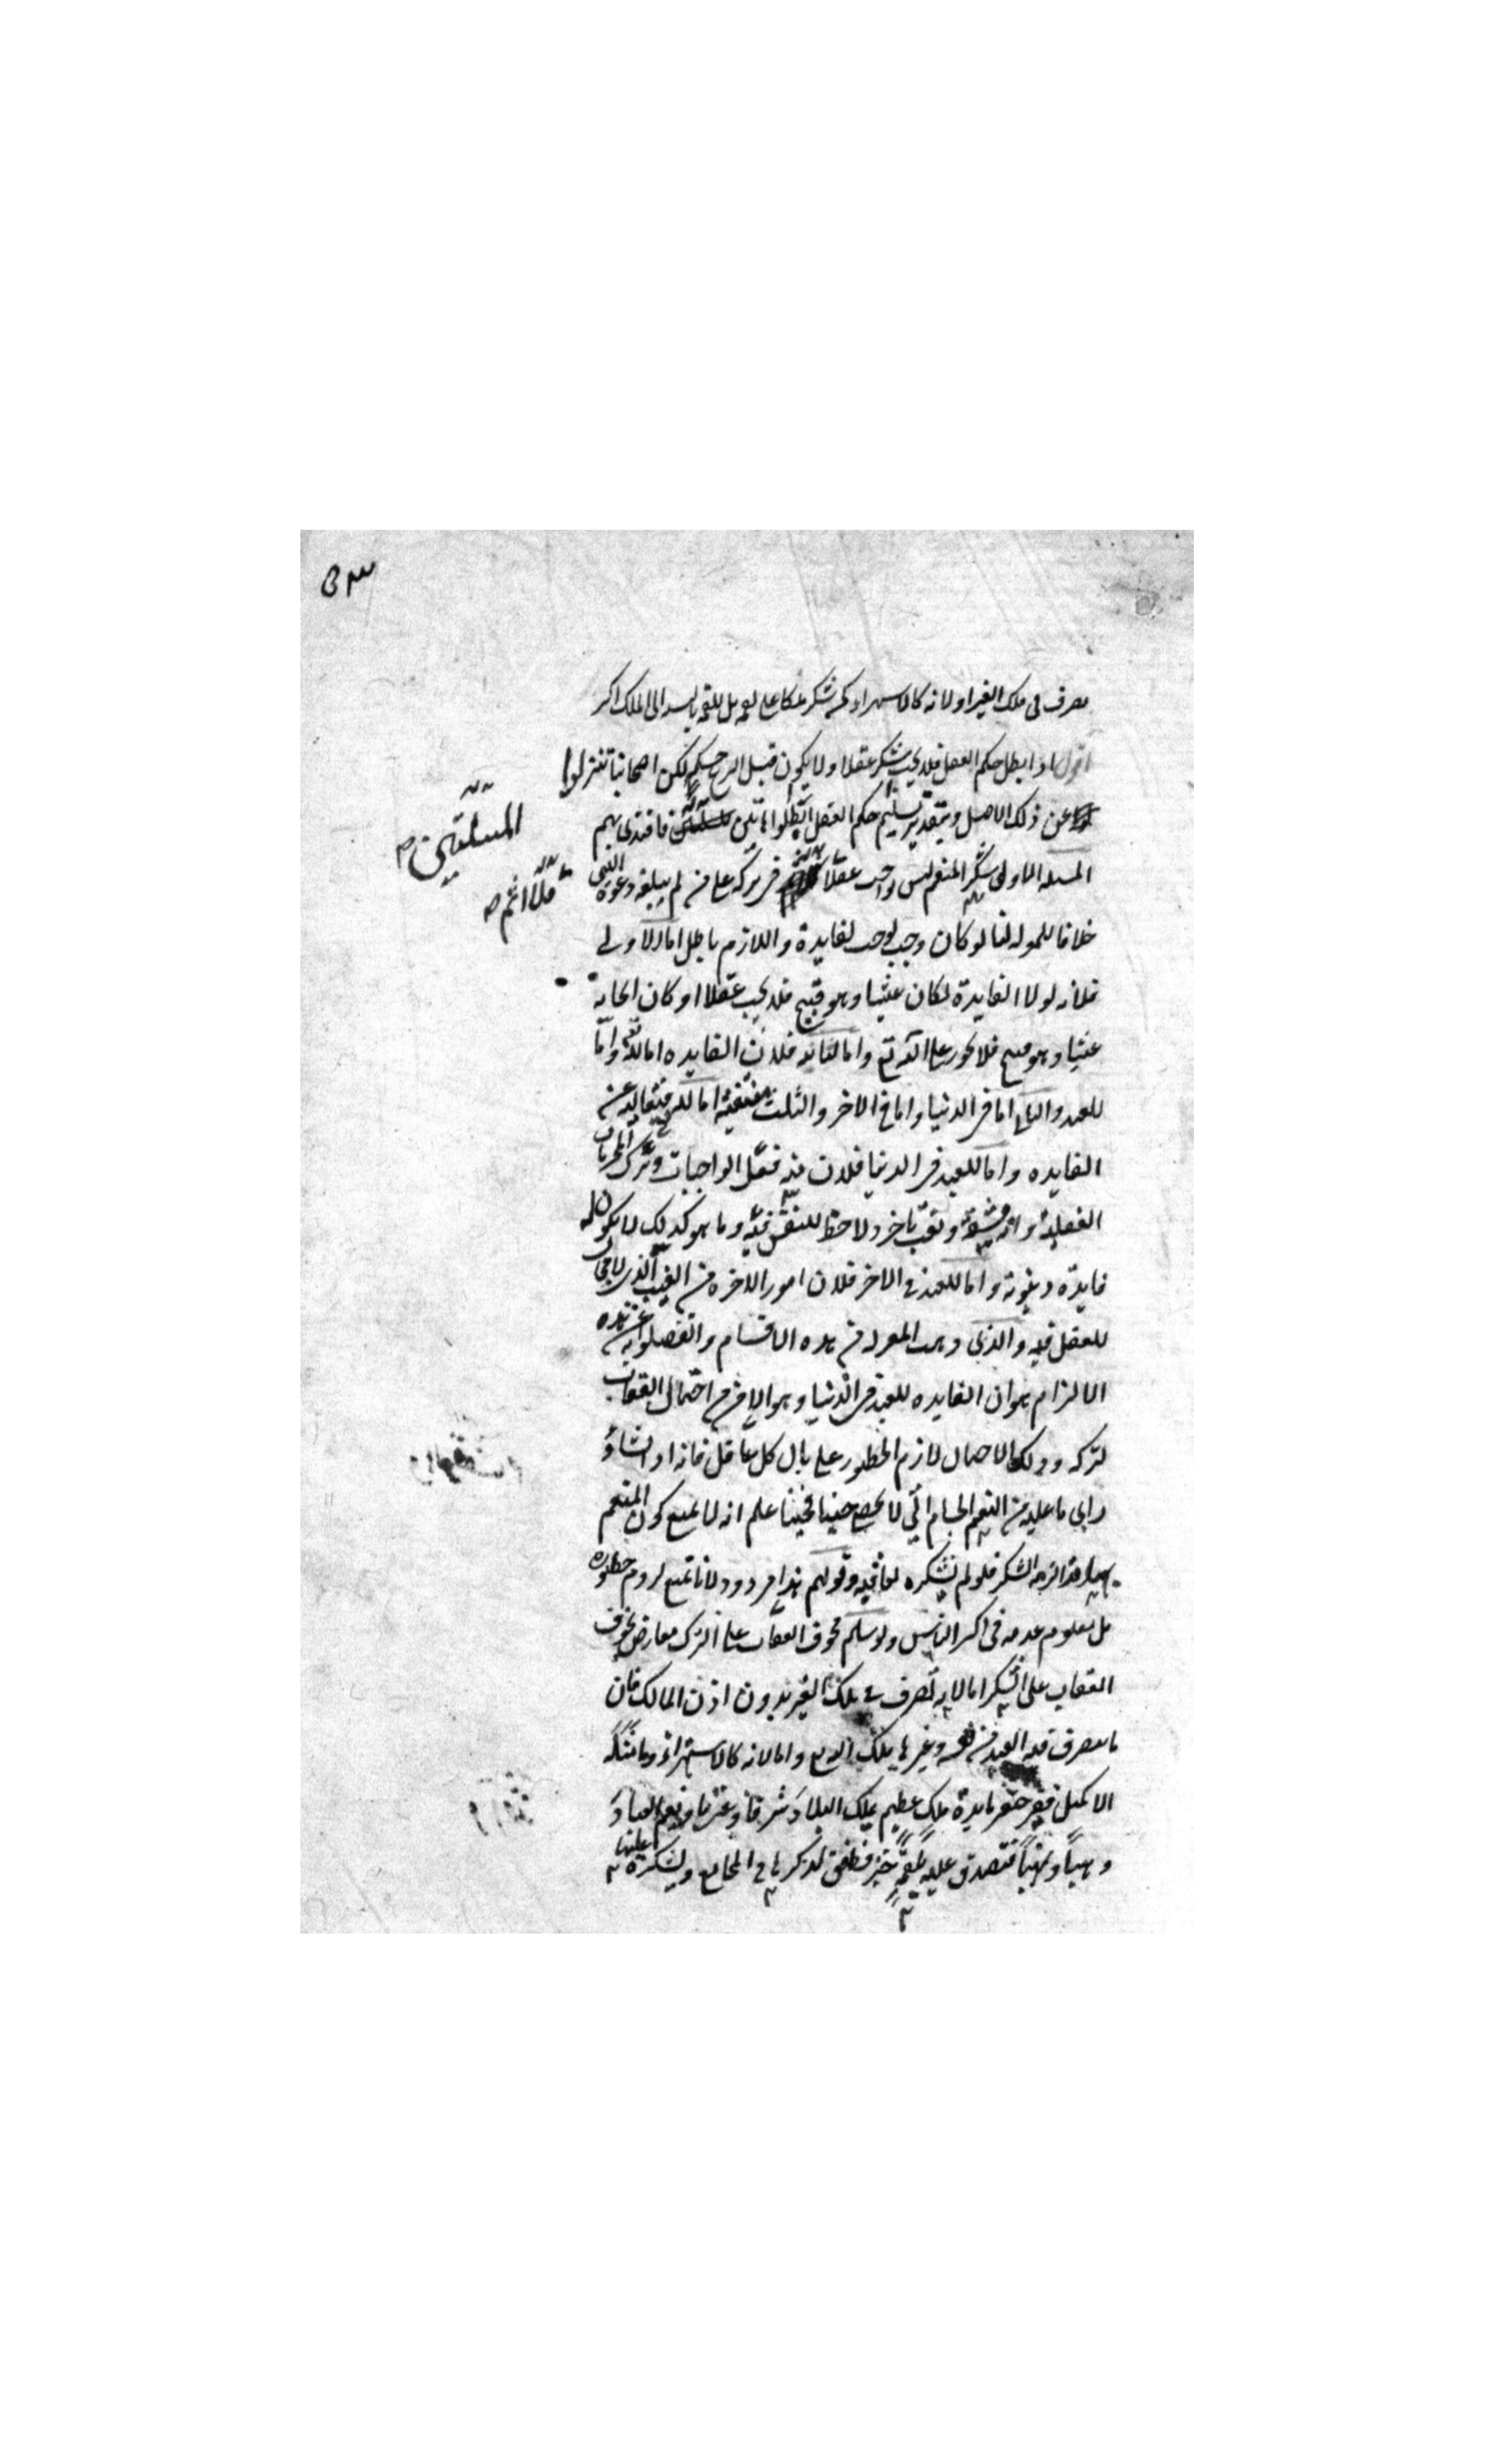 تصرف في ملك الغير او لانه كالاستهزاء كمن شكر ملكا على لقمة بل اللقمة بالنسبة الى الملك اكثر
اقول اذا بطل حكم العقل فلا يجب شكر عقلا ولا يكون قبل الشرع حكم لكن اصحابنا تنزلوا
عن ذلك الاصل وبتقدير تسليم حكم العقل ابطلوا هاتين فاقتدى بهم
المسئلتين صح
المسئله الاولى شكر المنعم ليس بواجب عقلا في تركه على من لم يبلغه دعوة النبي
فلا اثم صح
خلافا للمعتزلة لنا لو كان وجب لوجب لفايدة واللازم باطل اما الاولى
فلانه لولا الفايدة لكان عبثا وهو قبيح فلا يجب عقلا او كان ايجابه
عبثا وهو قبيح فلا يجوز على الله تع واما الثانية فلان الفايده اما لله تعالى واما
للعبد والثاني اما في الدنيا واما في الاخرة والثلث منتفية اما لله فلتعاليه عن
الفايده واما للعبد في الدنيا فلان منه فعل الواجبات وترك المحرمات
العقلية وانه مشقة وتعب ناجز ولا حظ للنفس فيه وما هو كذلك لا يكون له
فايدة دنيوية واما للعبد في الاخرة فلان امور الاخره من الغيب الذي لا مجال
للعقل فيه والذي المعتزلة من هذه الاقسام وانفصلوا به عن هذه
الالزام هو ان الفايده للعبد في الدنيا وهو الامن من احتمال العقاب
لتركه وذلك الاحتمال لازم الخطور على بال كل عاقل فانه اذا نشاء و
راى ما عليه من النعم الجسام التي لا تحصى حينا فحينا علم انه لا يمنع كون المنعم
بها قد الزمه الشكر فلو لم يشكره لعاقبه وقولهم هذا مردود لانا نمنع لزوم خطوره
بل معلوم عدمه في اكثر الناس ولو سلم فخوف العقاب على الترك معارض بخوف
العقاب على الشكر اما لانه تصرف في ملك الغير بدون اذن المالك فان
ما يتصرف فيه العبد من نفسه وغيرها ملك الله تع واما لانه كالاستهزاء وما مثله
الا كمثل فقير حضر مايدة ملك عظيم يملك البلاد شرقا وغربا ويعم العباد
وهبا ونهبا فتصدق عليه بلقمة خبز فطفق يذكرها في المجامع ويشكره عليها